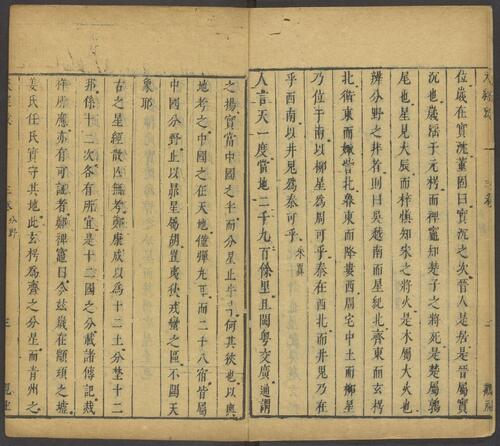 位歲在實沈董因曰實沈之次晉人是居是晉屬實
沈也歲淫于元枵而裨竈知楚子之將死是楚屬鶉
尾也星見大辰而梓慎知宋之將火是木屬大火也
辨分野之拜者則曰吳越南而星紀北齊東而玄枵
北衛東而娵訾北魯東而降婁西周宅中土而柳星
乃位于南以柳星爲周可乎秦在西北而井鬼乃在
乎西南以井鬼爲秦可乎
人言天一度當地二千九百餘里且閩粤交廣通謂
之揚實當中國之半而分星止
何其狹也以輿
地考之中國之在天地僅彈丸耳而二十八宿皆屬
中國分野止以昴星錫胡豈夷狄戎蠻之區不關天
象耶
古之星經散亡無考鄭康成以爲十二土分埜十二
邦係十二次各有所宜是十二國之分載諸傳記裁
祥所應亦有可證者鄭裨竈曰今兹歲在顓頊之墟
姜氏任氏實守其地此玄枵爲齊之分星而青州之
三